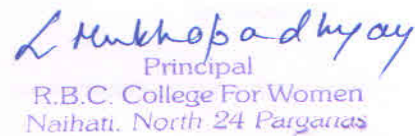 S Mukhopadhyay
Principal
R.B.C. College For Women
Naihati. North 24 Parganas